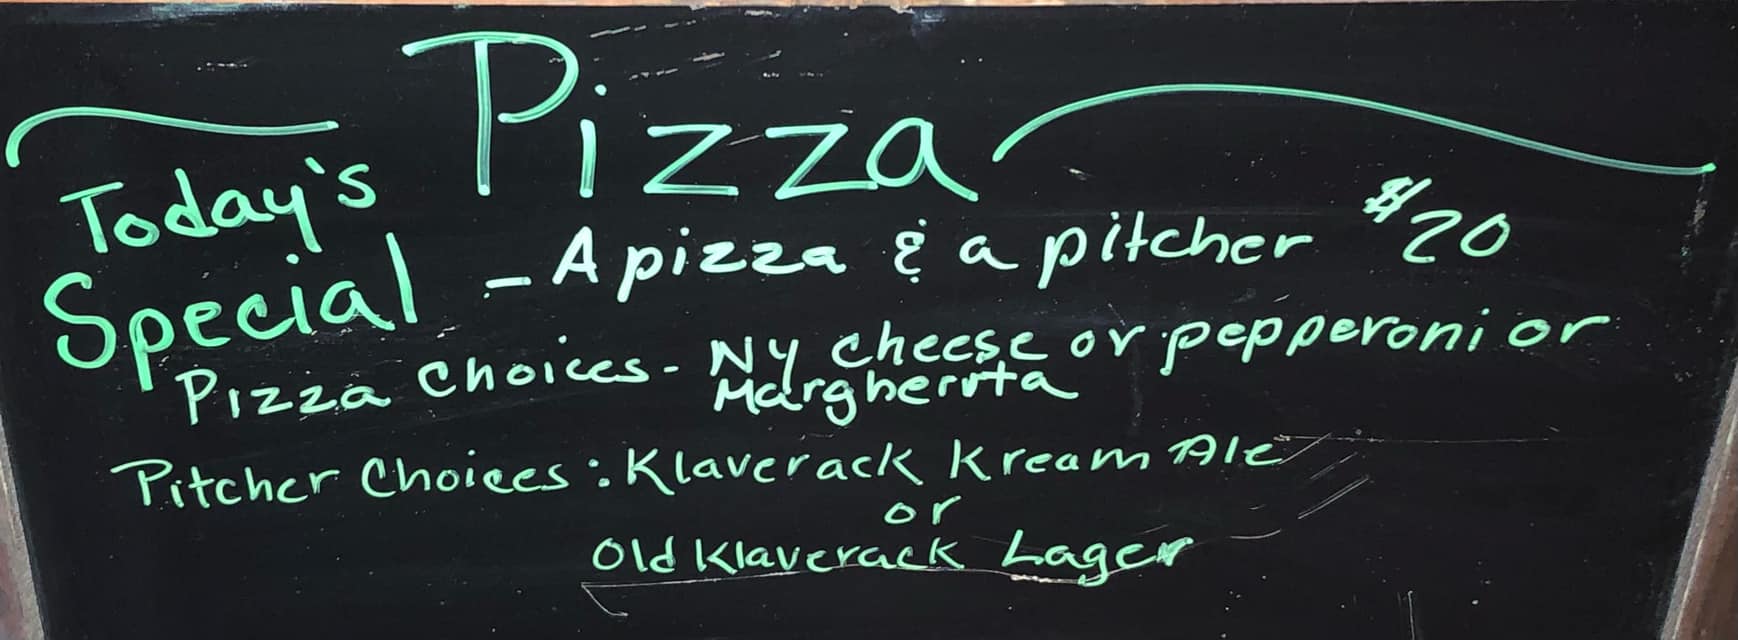 Pizza
Today's
Special - A pizza & a pitcher $20
Pizza Choices - NY cheese or pepperoni or
Margherita
Pitcher Choices: Klaverack Kream Ale
or
Old Klaverack Lager